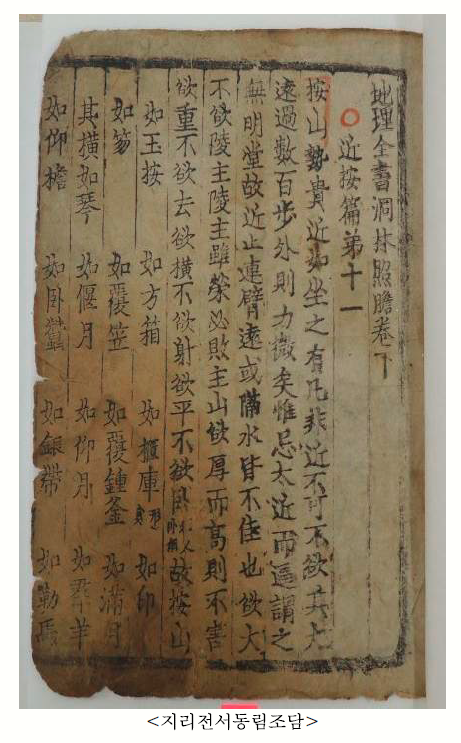 地理全書洞林照膽卷下
近按篇第十一
按山勢貴近如坐之有几非近不可不欲其大
遠過數百步外則力微矣惟忌太近而逼謂之
無明堂故近止連臂遠或隔水皆不佳也欲大
不欲陵主陵主雖榮必敗主山欲厚而高則不害
欲重不欲去欲橫不欲射欲平不欲臥故按山
如玉按 如方箱 如櫃庫 如印
如笏 如覆笠 如覆鍾釜 如滿月
其橫如琴 如偃月 如仰月 如群羊
如仰檐 如臥蠶 如銀帶 如勒馬
<지리전서동림조담>